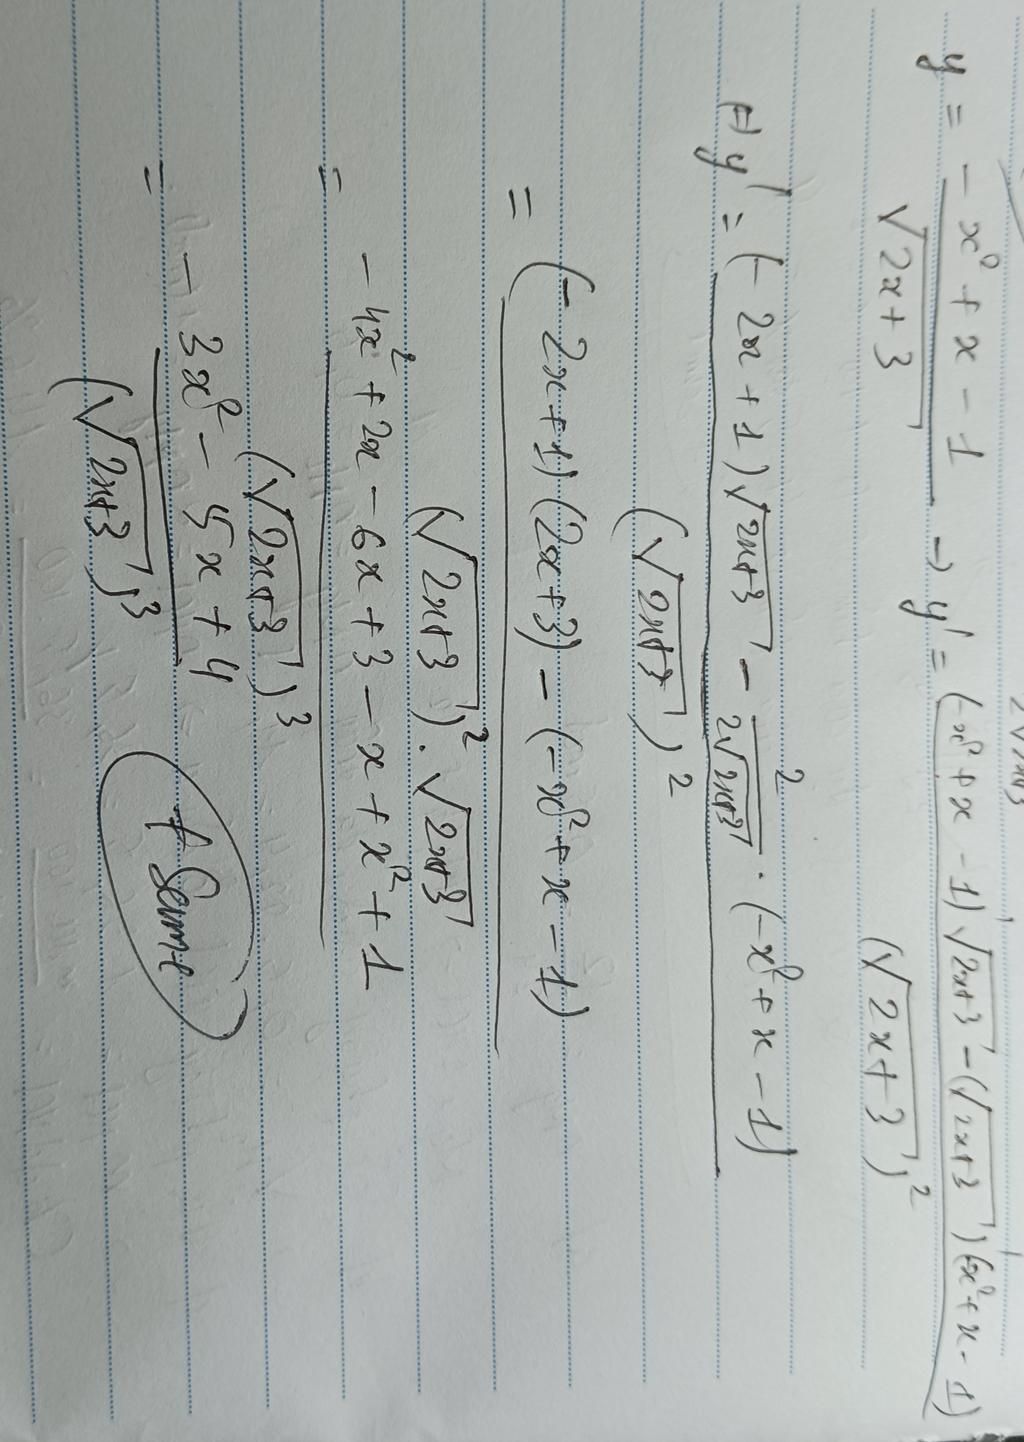 2√2x+3
y = -x² + x - 1 / √2x+3 → y' = (-x² + x - 1)'√2x+3 - (√2x+3)'(-x² + x - 1) / (√2x+3)²
y' = (-2x+1)√2x+3 - 2/2√2x+3 · (-x² + x - 1) / (√2x+3)²
= (-2x+1)(2x+3) - (-x² + x - 1) / (√2x+3)² · √2x+3
= -4x² + 2x - 6x + 3 - x + x² + 1 / (√2x+3)³
= -3x² - 5x + 4 / (√2x+3)³